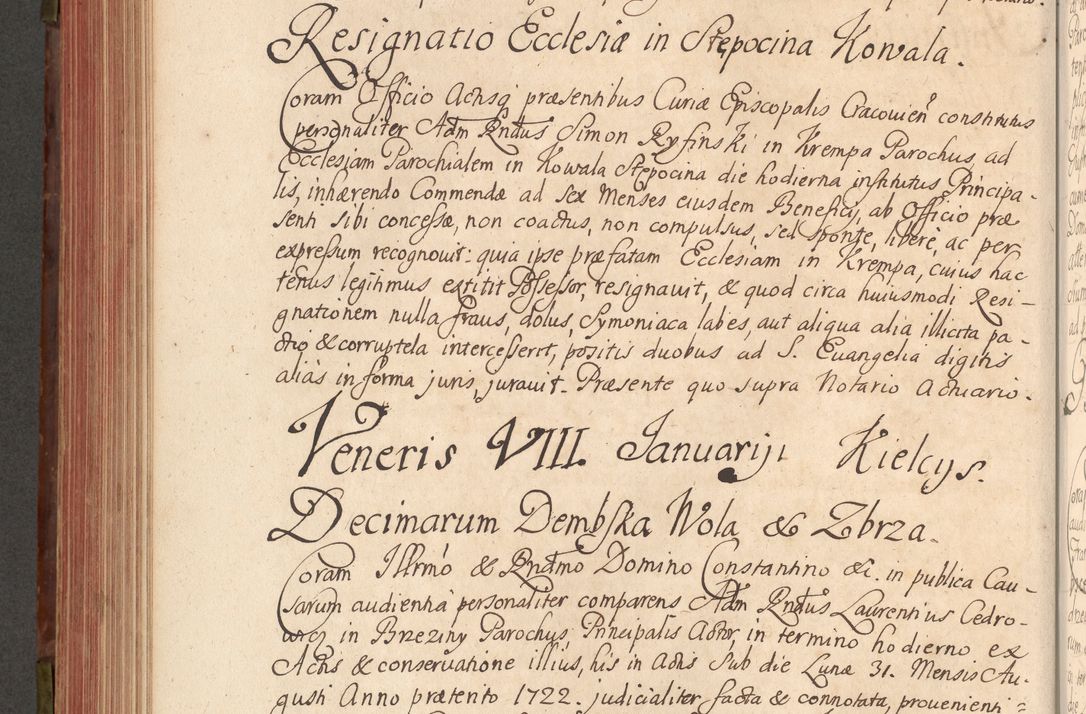 Resignatio Ecclesiæ in Stępocina Kowala.
Coram Officio Actisq; præsentibus Curiæ Episcopalis Cracovien constitutus
personaliter Adm Rndus Simon Ryfinski in Krempa Parochus, ad
Ecclesiam Parochialem in Kowala Stępocina die hodierna institutus Principa-
lis, inhærendo Commendæ ad sex Menses eiusdem Beneficij, ab Officio præ
senti sibi concessæ, non coactus, non compulsus, sed sponte, libere, ac per
expressum recognovit: quia ipse præfatam Ecclesiam in Krempa, cuius hac
tenus legitimus extitit Possessor, resignavit, & quod circa huiusmodi Resi-
gnationem nulla fraus, dolus, Symoniaca labes, aut aliqua alia illicita pa-
ctio & corruptela intercesserit, positis duobus ad S. Evangelia digitis
aliàs in forma juris, juravit. Præsente quo supra Notario Actuario.
Veneris VIII. Januarij Kielcys.
Decimarum Dembska Wola & Zbrza.
Coram Illrmo & Rndmo Domino Constantino &c. in publica Cau-
sarum audientia personaliter comparens Adm Rndus Laurentius Cedro-
wicz in Brzeziny Parochus, Principalis Actor, in termino hodierno ex
Actis & conservatione illius, his in Actis sub die Lunæ 31. Mensis Au-
gusti Anno prætento 1722. judicialiter facta & connotata, provenienti=